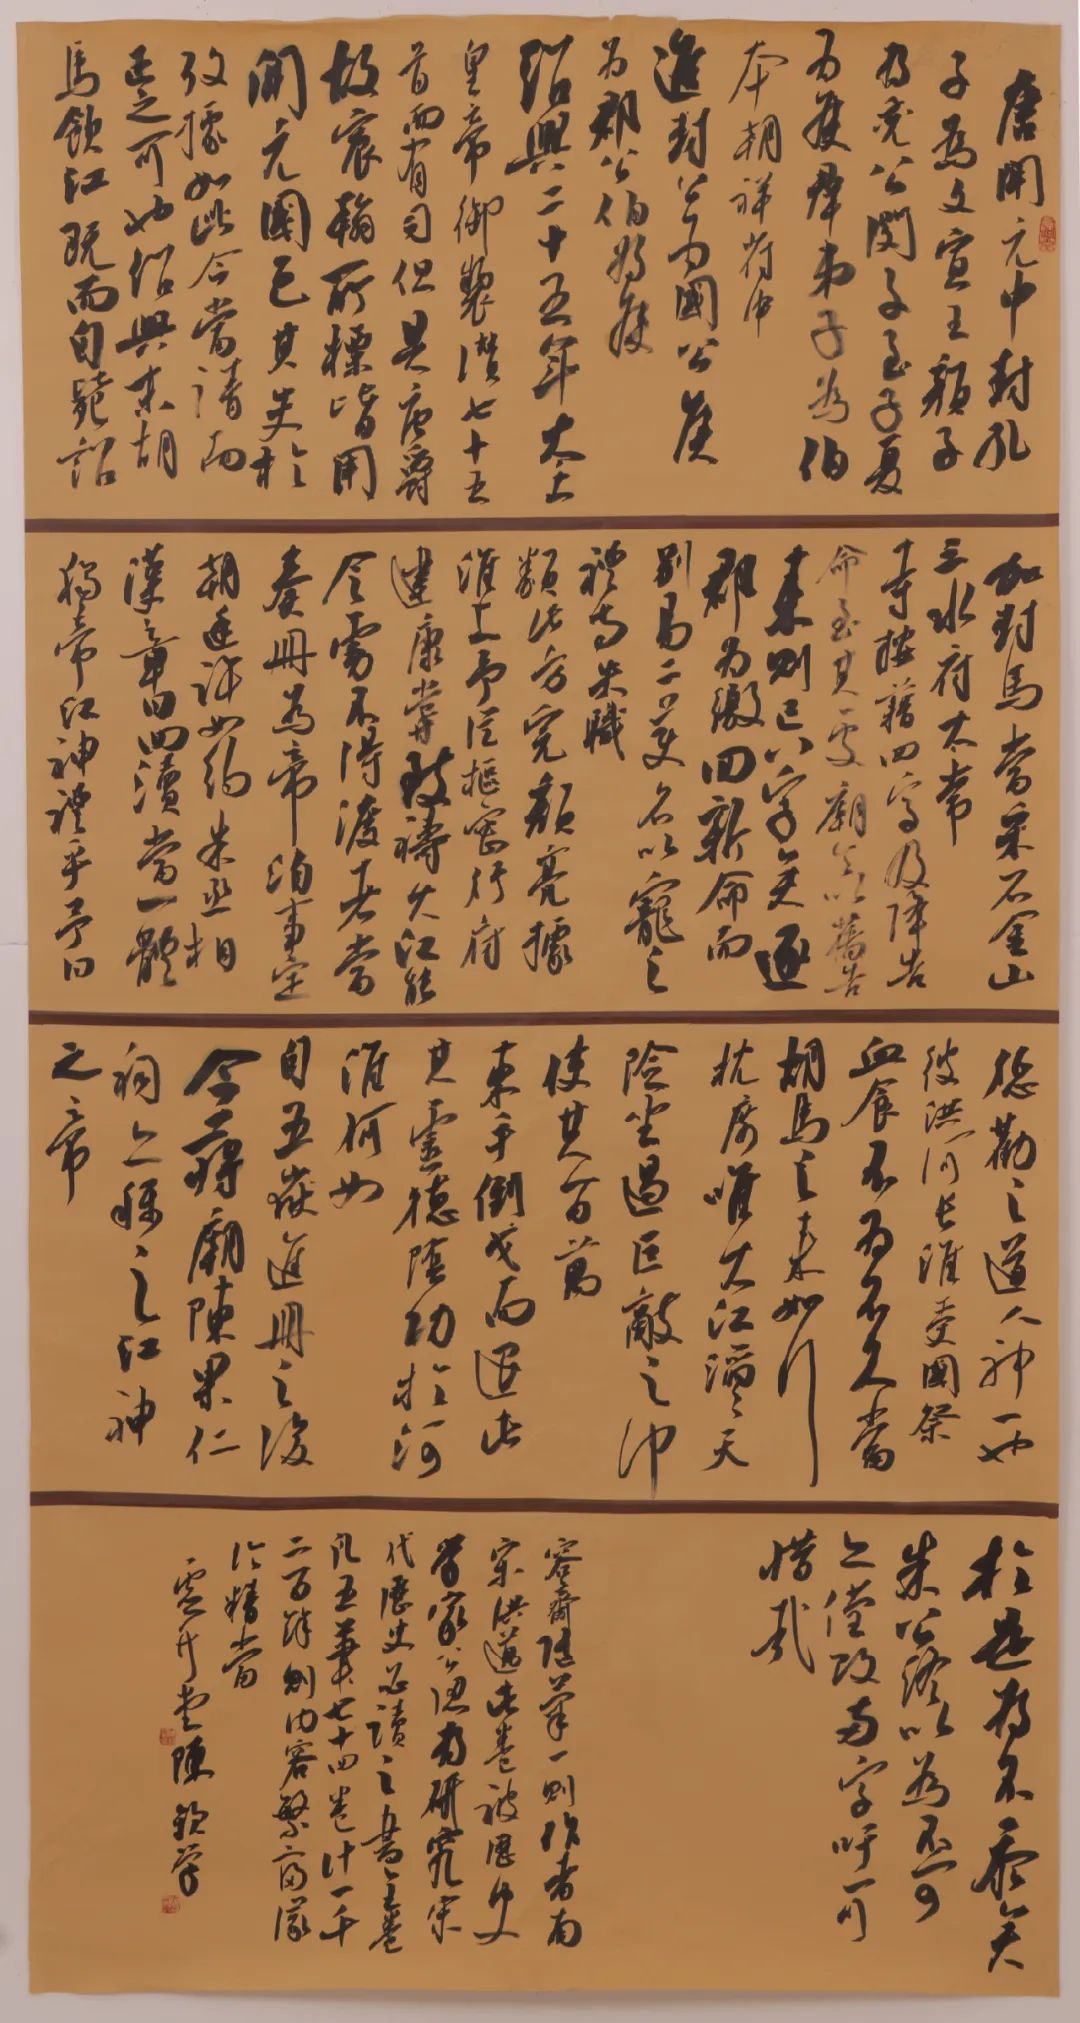 唐開元中封孔
子為文宣王顏子
為兗公閔子至子夏
為侯群弟子為伯
本朝祥符中
進封公為國公侯
為郡公伯為侯
紹興二十五年太上
皇帝御製贊七十五
首而有司但具唐爵
故宸翰所標皆用
開元國邑其失於
攷據如此今當請而
正之可也紹興末胡
馬飲江既而自斃詔
加封馬當采石金山
三水府太常
寺按籍四字及降告
命至其處廟令以舊告
來則已八字矣逐
郡為繳回新命而
別易二美名以寵之
禮寺失職
類此方完顏亮據
淮上予從樞密行府
建康嘗致禱大江能
令虜不得渡者當
奏冊為帝洎事定
朝廷許如約朱丞相
漢章曰四瀆當一體
獨帝江神禮乎予曰
懲勸之道人神一也
彼洪河長淮受國祭
血食不為不久當
胡馬之來如行
枕席唯大江滔滔天
險坐遏巨敵之沖
使其百萬
束手倒戈而退此
其靈德陰功於河
淮何如
自五嶽進冊之後
今蔣廟陳果仁
祠亦稱之江神
之帝
於是為不忝矣
朱公終以為不可
亦僅改兩字吁可
惜哉
容齋隨筆一則作者南
宋洪邁此卷被歷史
學家公認為研究宋
代歷史必讀之書全卷
凡五筆七十四卷計一千
二百餘則內容繁富議
論精當
陳